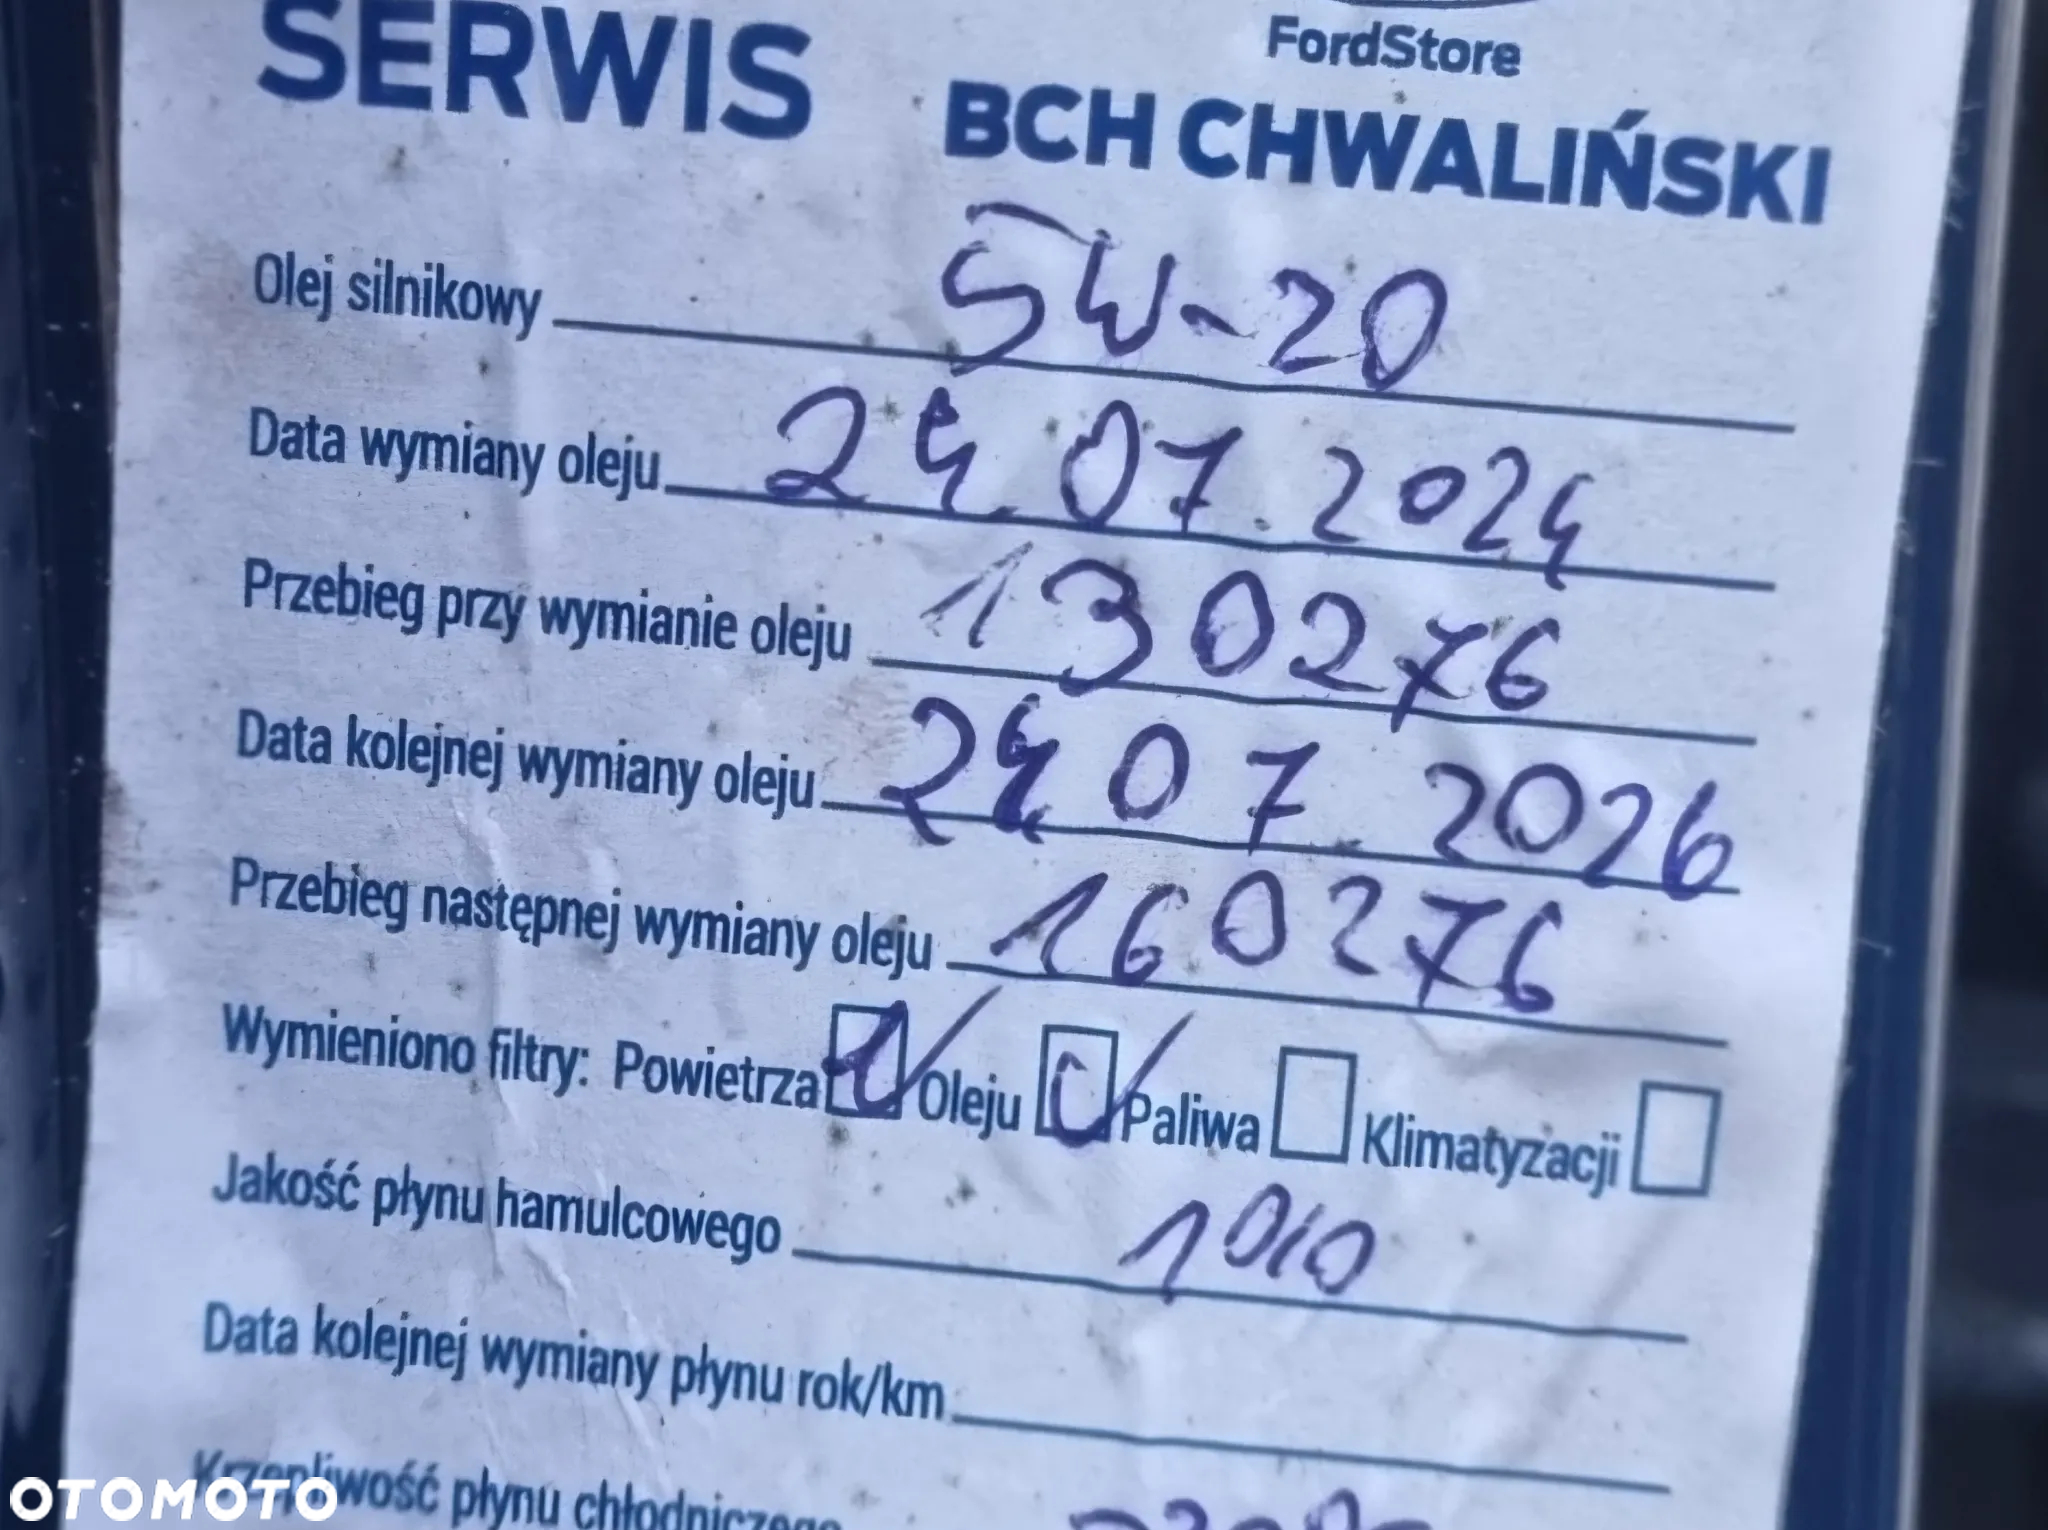 FordStore
SERWIS BCH CHWALIŃSKI
Olej silnikowy 5W-20
Data wymiany oleju 24.07.2024
Przebieg przy wymianie oleju 130276
Data kolejnej wymiany oleju 24 07.2026
Przebieg następnej wymiany oleju 160276
Wymieniono filtry: Powietrza Oleju Paliwa Klimatyzacji
Jakość płynu hamulcowego
Data kolejnej wymiany płynu rok/km
Krzepliwość płynu chłodniczego
OTOMOTO